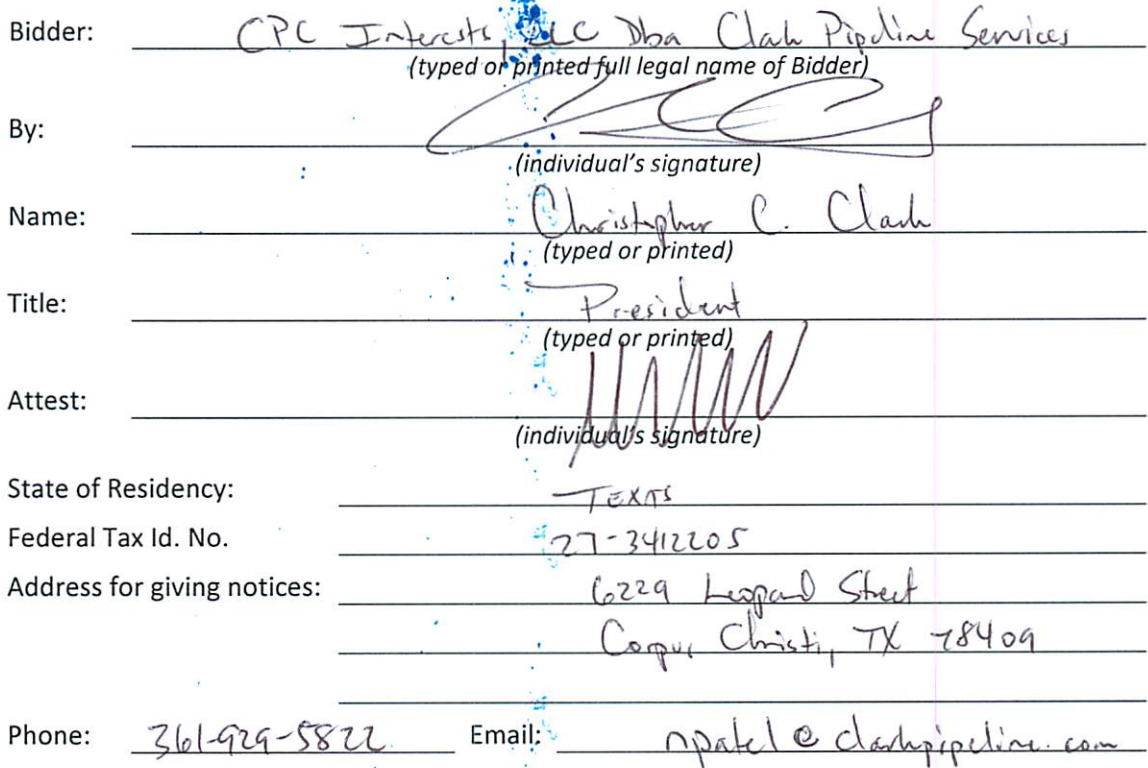 Bidder: CPC Interests, LLC Dba Clark Pipeline Services
(typed or printed full legal name of Bidder)
By:
(individual's signature)
Name: Christopher C. Clark
(typed or printed)
Title: President
(typed or printed)
Attest:
(individual's signature)
State of Residency: TEXAS
Federal Tax Id. No. 27-3412205
Address for giving notices: 6229 Leopard Street
Corpus Christi, TX 78409
Phone: 361-929-5822 Email: npatel@clarkpipeline.com